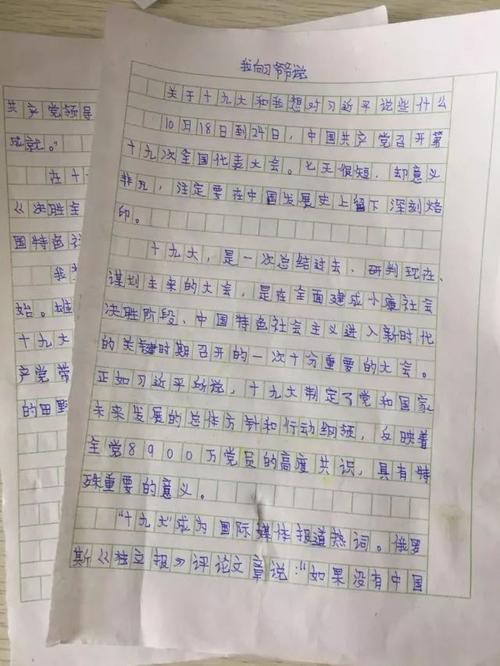 我向习爷爷说
关于十九大和我想对习近平说些什么
10月18日到24日，中国共产党召开第
十九次全国代表大会。七天很短，却意义
非凡，注定要在中国发展史上留下深刻烙
印。
十九大，是一次总结过去、研判现在、
谋划未来的大会，是在全面建成小康社会
决胜阶段、中国特色社会主义进入新时代
的关键时期召开的一次十分重要的大会。
正如习近平所说，十九大制定了党和国家
未来发展的总体方针和行动纲领，反映着
全党8900万党员的高度共识，具有特
殊重要的意义。
“十九大”成为国际媒体报道热词。俄罗
斯《独立报》评论文章说：“如果没有中国
共产党领导
成就。”
在十
《决胜全
国特色社
我
始。雄
十九大
产党带
的田野